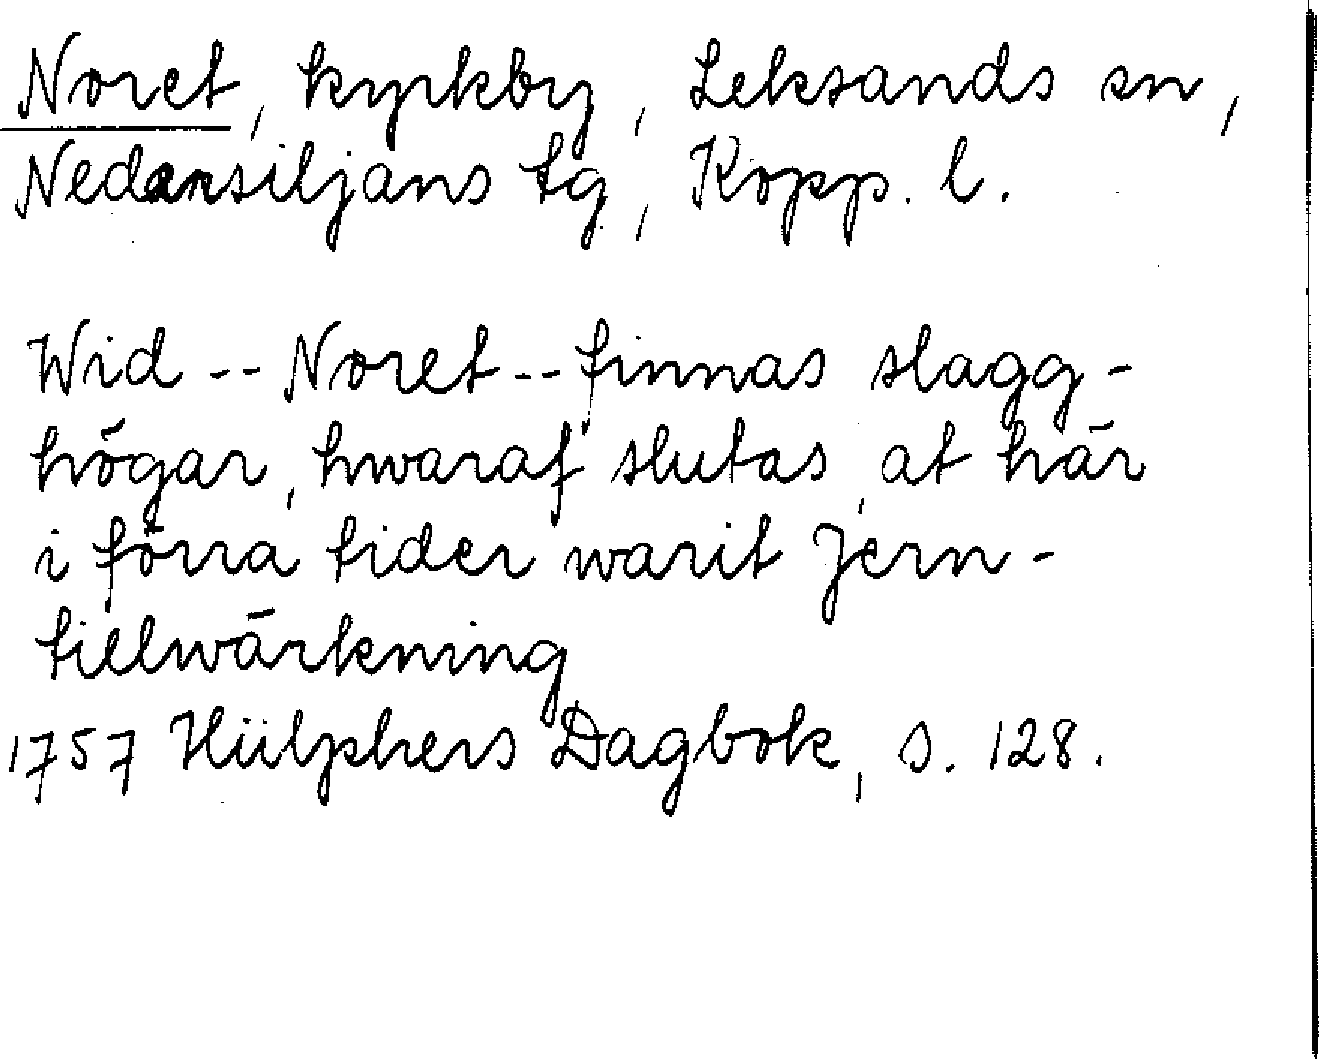 Noret, kyrkby, Leksands sn,
Nedansiljans tg, Kopp. l.
Wid -- Noret -- finnas slagg-
högar, hwaraf slutas, at här
i förra tider warit Jern-
tillwärkning
1757 Hülphers Dagbok, s. 128.